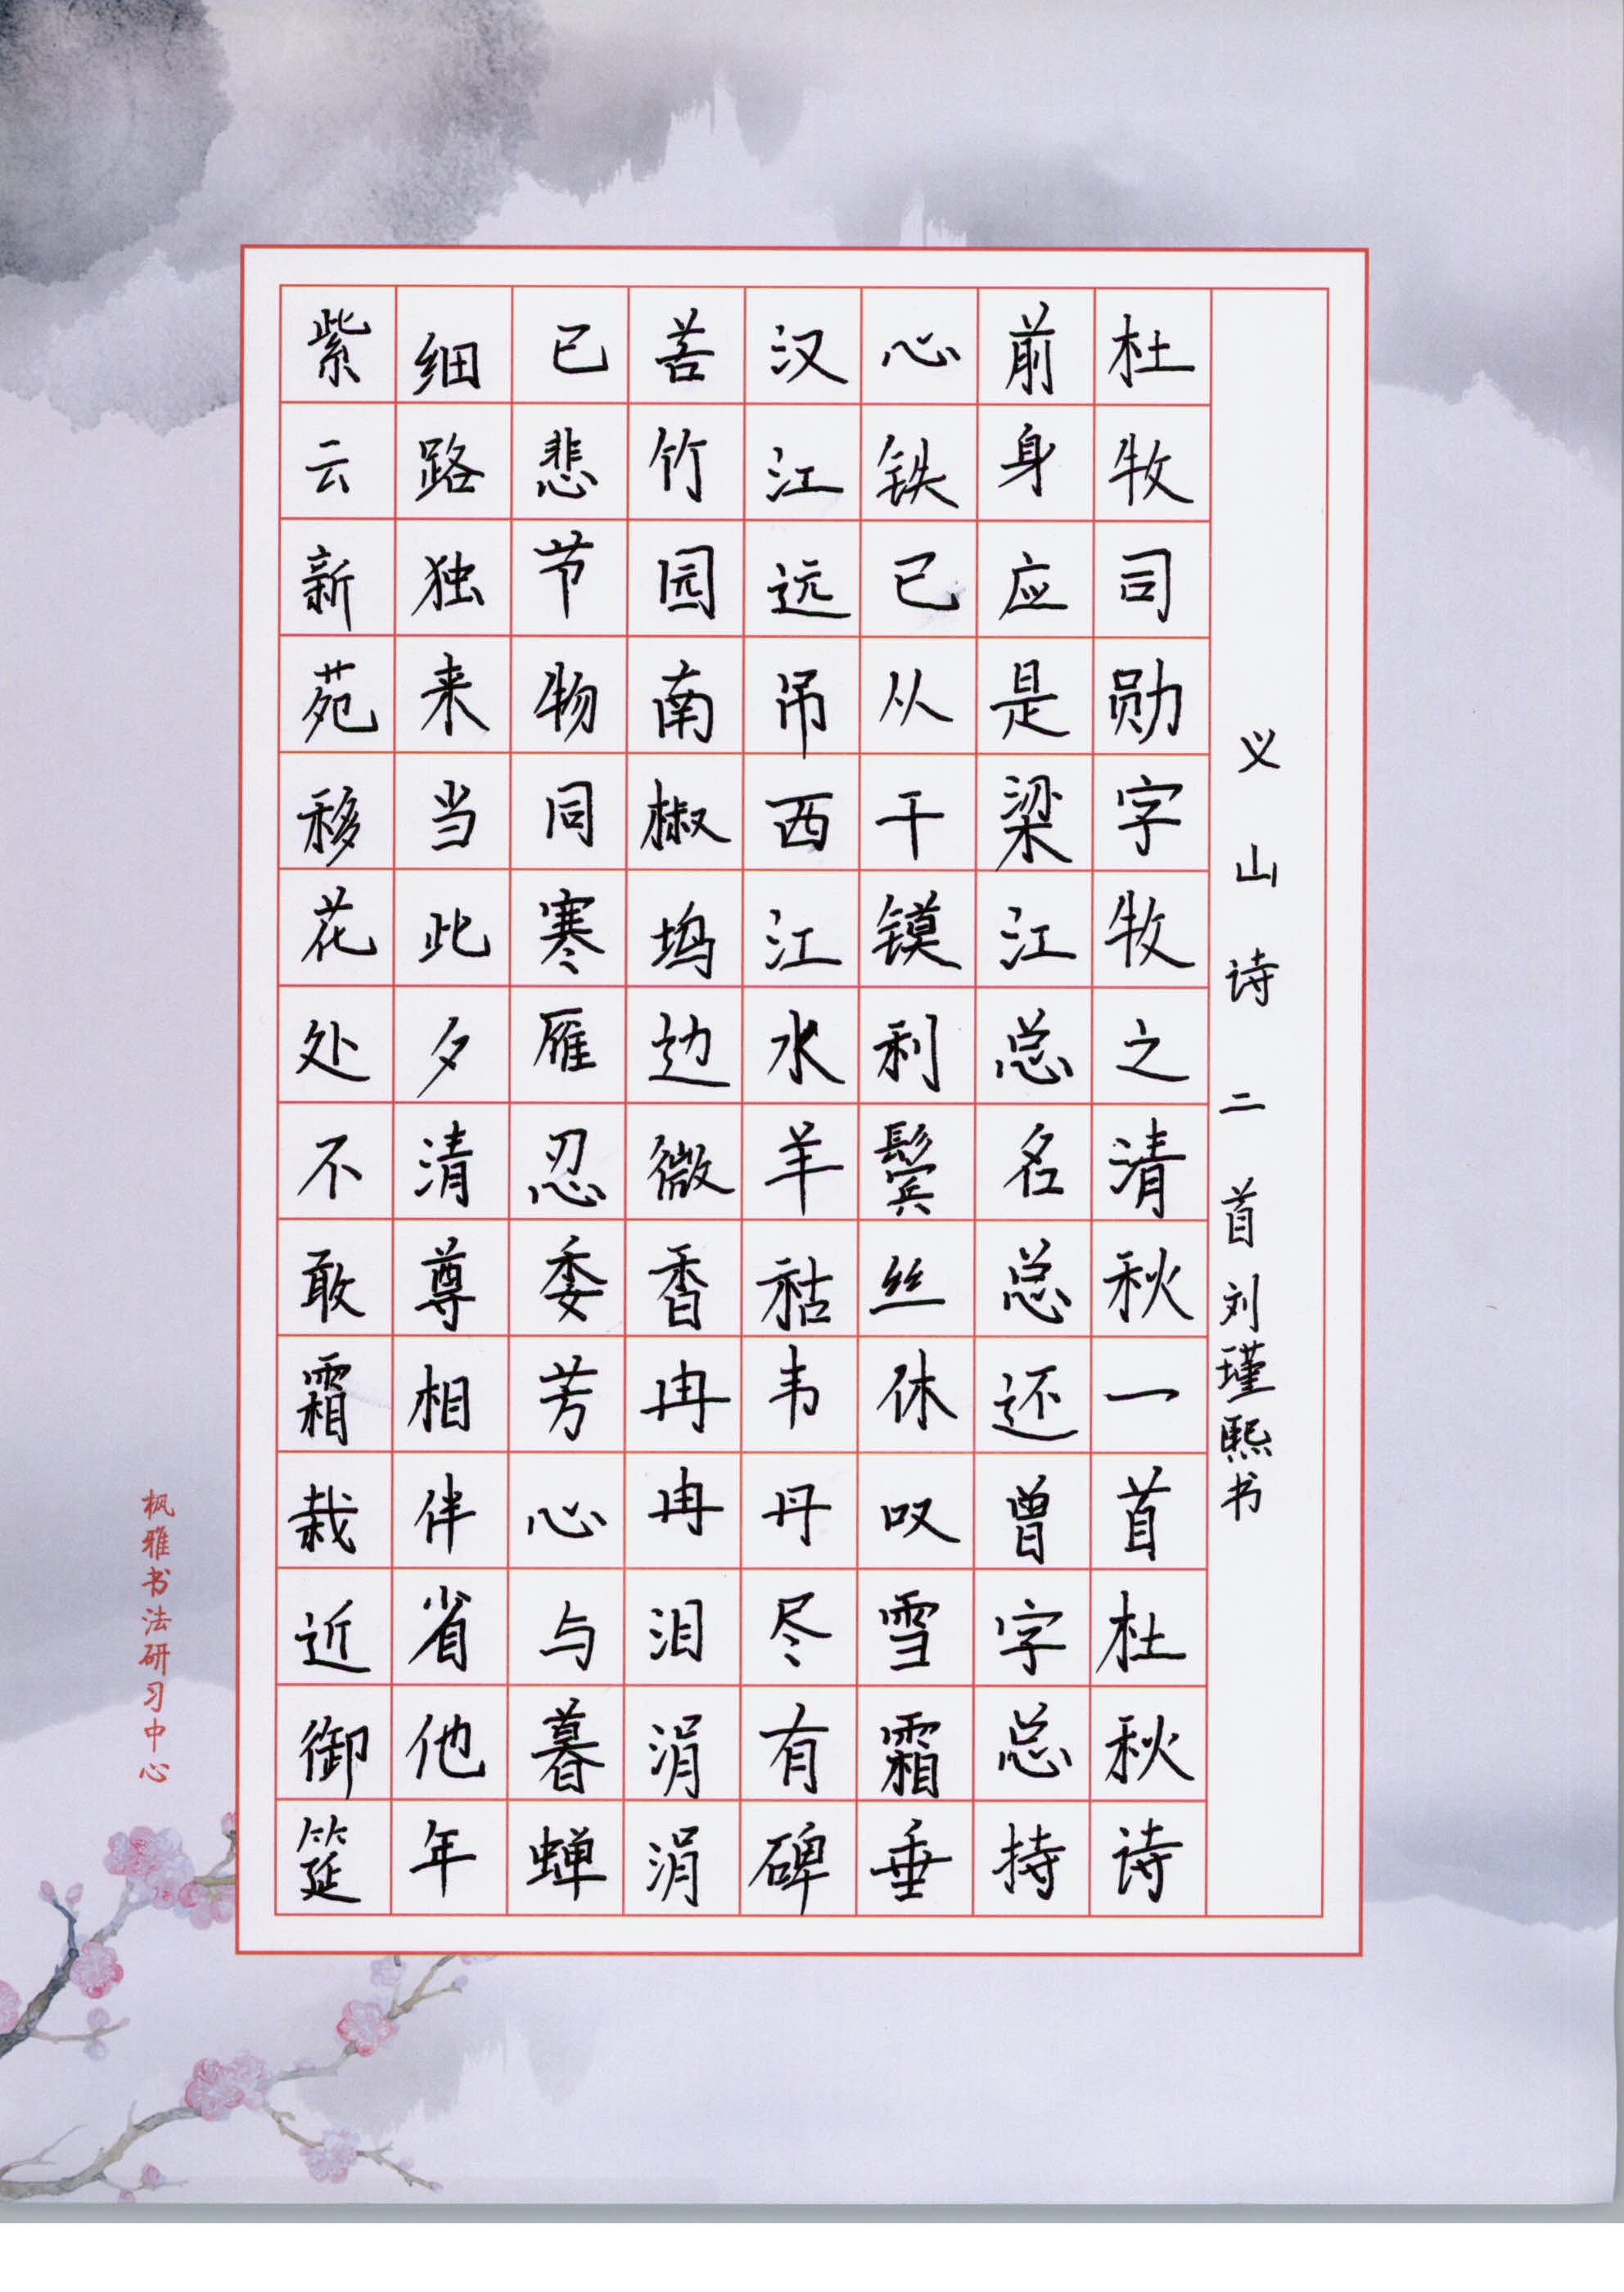 义山诗二首 刘瑾熙书
杜牧司勋字牧之清秋一首杜秋诗
前身应是梁江总名总还曾字总持
心铁已从干镆利鬓丝休叹雪霜垂
汉江远吊西江水羊祜韦丹尽有碑
苦竹园南椒坞边微香冉冉泪涓涓
已悲节物同寒雁忍委芳心与暮蝉
细路独来当此夕清尊相伴省他年
紫云新苑移花处不敢霜栽近御筵
枫雅书法研习中心